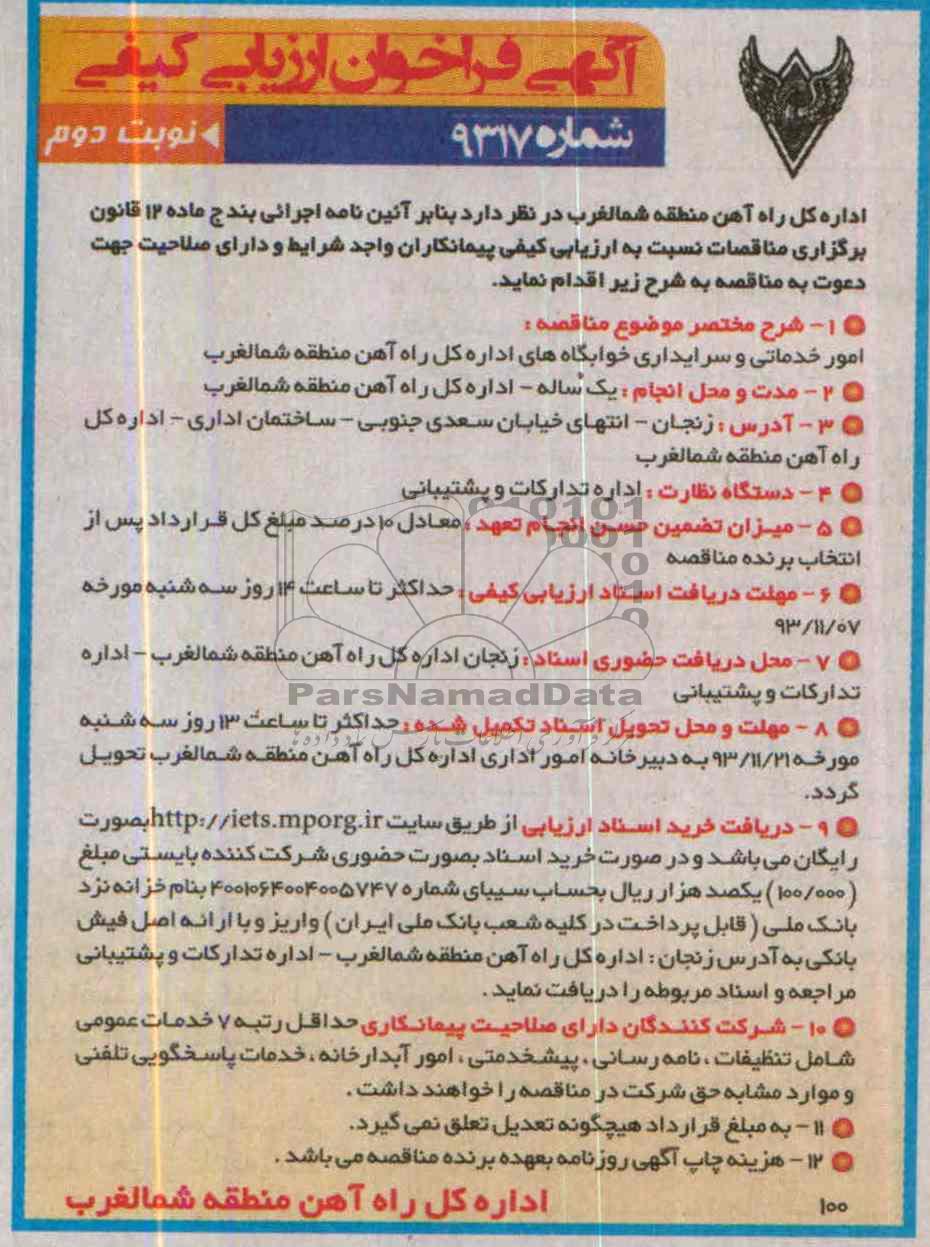 آگهی فراخوان ارزیابی کیفی
شماره ۹۳۱۷
نوبت دوم
اداره کل راه آهن منطقه شمالغرب در نظر دارد بنابر آئین نامه اجرائی بند ج ماده ۱۲ قانون
برگزاری مناقصات نسبت به ارزیابی کیفی پیمانکاران واجد شرایط و دارای صلاحیت جهت
دعوت به مناقصه به شرح زیر اقدام نماید.
۱- شرح مختصر موضوع مناقصه :
امور خدماتی و سرایداری خوابگاه های اداره کل راه آهن منطقه شمالغرب
۲- مدت و محل انجام : یک ساله - اداره کل راه آهن منطقه شمالغرب
۳- آدرس : زنجان - انتهای خیابان سعدی جنوبی - ساختمان اداری - اداره کل
راه آهن منطقه شمالغرب
۴- دستگاه نظارت : اداره تدارکات و پشتیبانی
۵- میزان تضمین حسن انجام تعهد : معادل ۱۰ درصد مبلغ کل قرارداد پس از
انتخاب برنده مناقصه
۶- مهلت دریافت اسناد ارزیابی کیفی : حداکثر تا ساعت ۱۴ روز سه شنبه مورخه
۹۳/۱۱/۰۷
۷- محل دریافت حضوری اسناد : زنجان اداره کل راه آهن منطقه شمالغرب - اداره
تدارکات و پشتیبانی
ParsNamadData
۸- مهلت و محل تحویل اسناد تکمیل شده : حداکثر تا ساعت ۱۳ روز سه شنبه
مورخه ۹۳/۱۱/۲۱ به دبیرخانه امور اداری اداره کل راه آهن منطقه شمالغرب تحویل
گردد.
۹- دریافت خرید اسناد ارزیابی از طریق سایت http://iets.mporg.ir بصورت
رایگان می باشد و در صورت خرید اسناد بصورت حضوری شرکت کننده بایستی مبلغ
( ۱۰۰/۰۰۰ ) یکصد هزار ریال بحساب سیبای شماره ۴۰۰۱۰۶۴۰۰۴۰۰۵۷۴۷ بنام خزانه نزد
بانک ملی ( قابل پرداخت در کلیه شعب بانک ملی ایران ) واریز و با ارائه اصل فیش
بانکی به آدرس زنجان : اداره کل راه آهن منطقه شمالغرب - اداره تدارکات و پشتیبانی
مراجعه و اسناد مربوطه را دریافت نماید .
۱۰- شرکت کنندگان دارای صلاحیت پیمانکاری حداقل رتبه ۷ خدمات عمومی
شامل تنظیفات ، نامه رسانی ، پیشخدمتی ، امور آبدارخانه ، خدمات پاسخگویی تلفنی
و موارد مشابه حق شرکت در مناقصه را خواهند داشت .
۱۱- به مبلغ قرارداد هیچگونه تعدیل تعلق نمی گیرد.
۱۲- هزینه چاپ آگهی روزنامه بعهده برنده مناقصه می باشد .
۱۰۰
اداره کل راه آهن منطقه شمالغرب